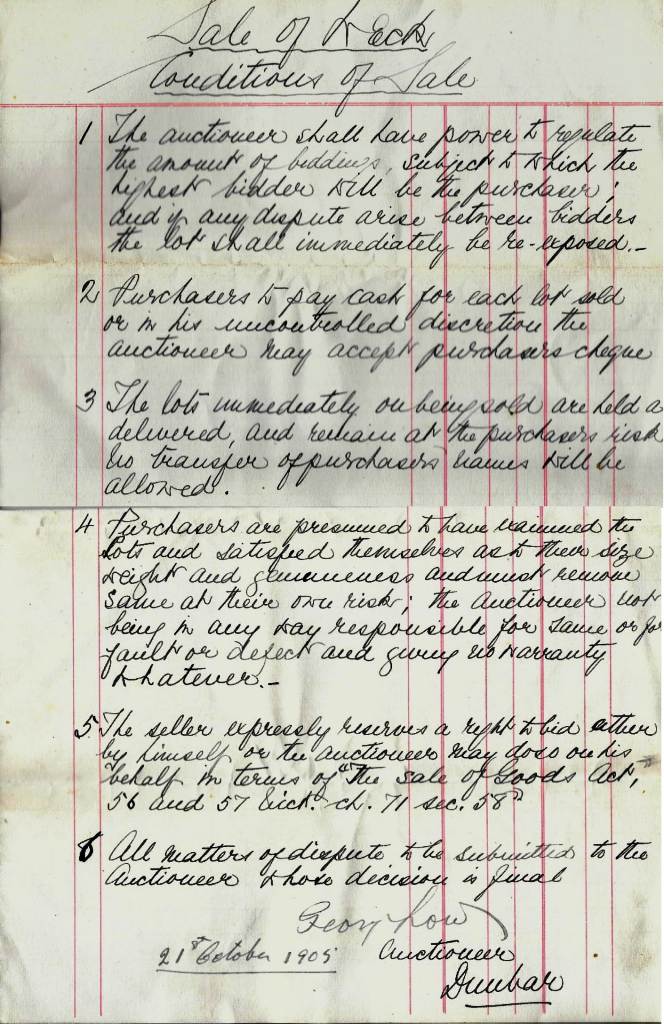 Sale of Wreck
Conditions of Sale
1 The auctioneer shall have power to regulate
the amount of biddings, subject to which the
highest bidder will be the purchaser;
and if any dispute arise between bidders
the lot shall immediately be re-exposed.-
2 Purchasers to pay cash for each lot sold
or in his uncontrolled discretion the
auctioneer may accept purchasers cheque
3 The lots immediately on being sold are held as
delivered, and remain at the purchasers risk
No transfer of purchasers names will be
allowed.
4 Purchasers are presumed to have examined the
lots and satisfied themselves as to their size
weight and genuineness and must remove
same at their own risk; the auctioneer not
being in any way responsible for same or for
fault or defect and giving no warranty
whatever.-
5 The seller expressly reserves a right to bid either
by himself or the auctioneer may do so on his
behalf in terms of "The Sale of Goods Act,
56 and 57 Vict. ch. 71 sec. 58"
6 All matters of dispute to be submitted to the
Auctioneer whose decision is final
Low
Auctioneer
21st October 1905
Dunbar